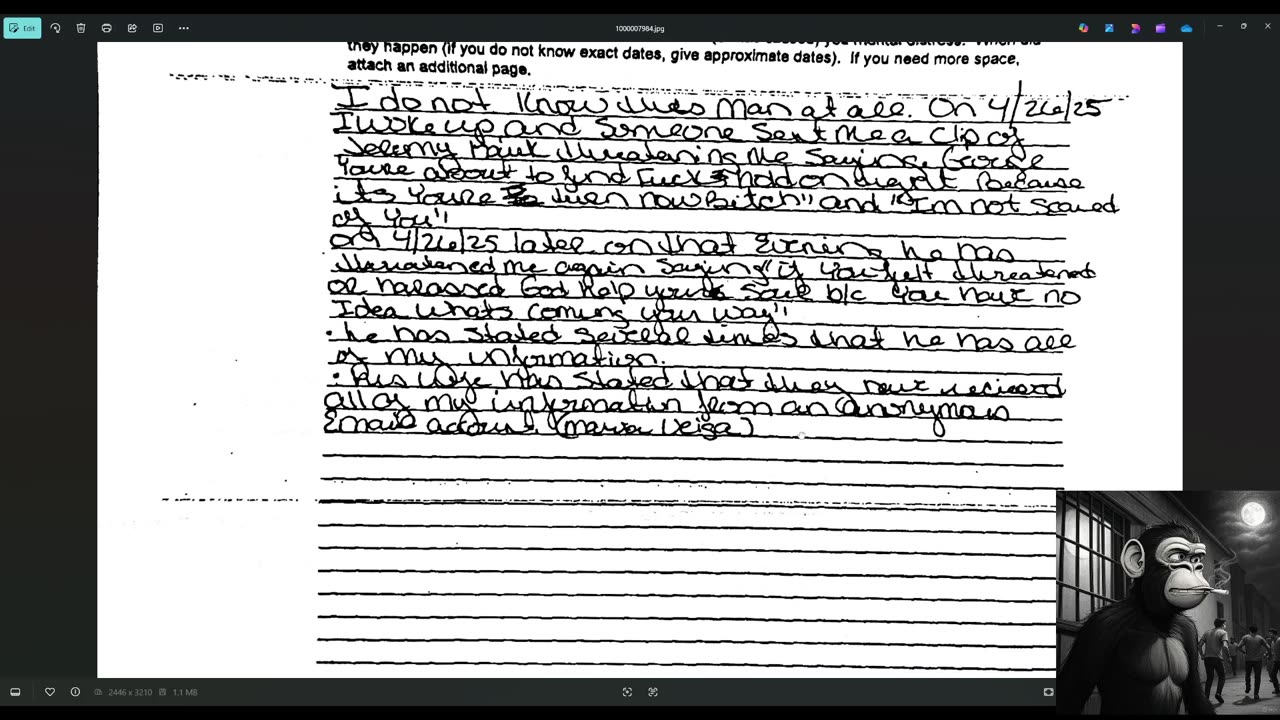 Edit
1000007984.jpg
they happen (if you do not know exact dates, give approximate dates). If you need more space,
attach an additional page.
I do not know this Man at all. On 4/26/25
I woke up and Someone Sent Me a Clip of
Jeremy threatening Me Saying
You're about to find Fuck hold on tight Because
its You're then now Bitch" and "I'm not Scared
of You"
on 4/26/25 later on that Evening he has
threatened me again Saying "if You felt threatened
or harassed God help your Soul b/c You have no
Idea whats coming your way"
• he has Stated Several times that he has all
of my information.
• His wife has Stated that they have recieved
all of my information from an anonymous
Email account (Maria Veiga)
2446 x 3210
1.1 MB